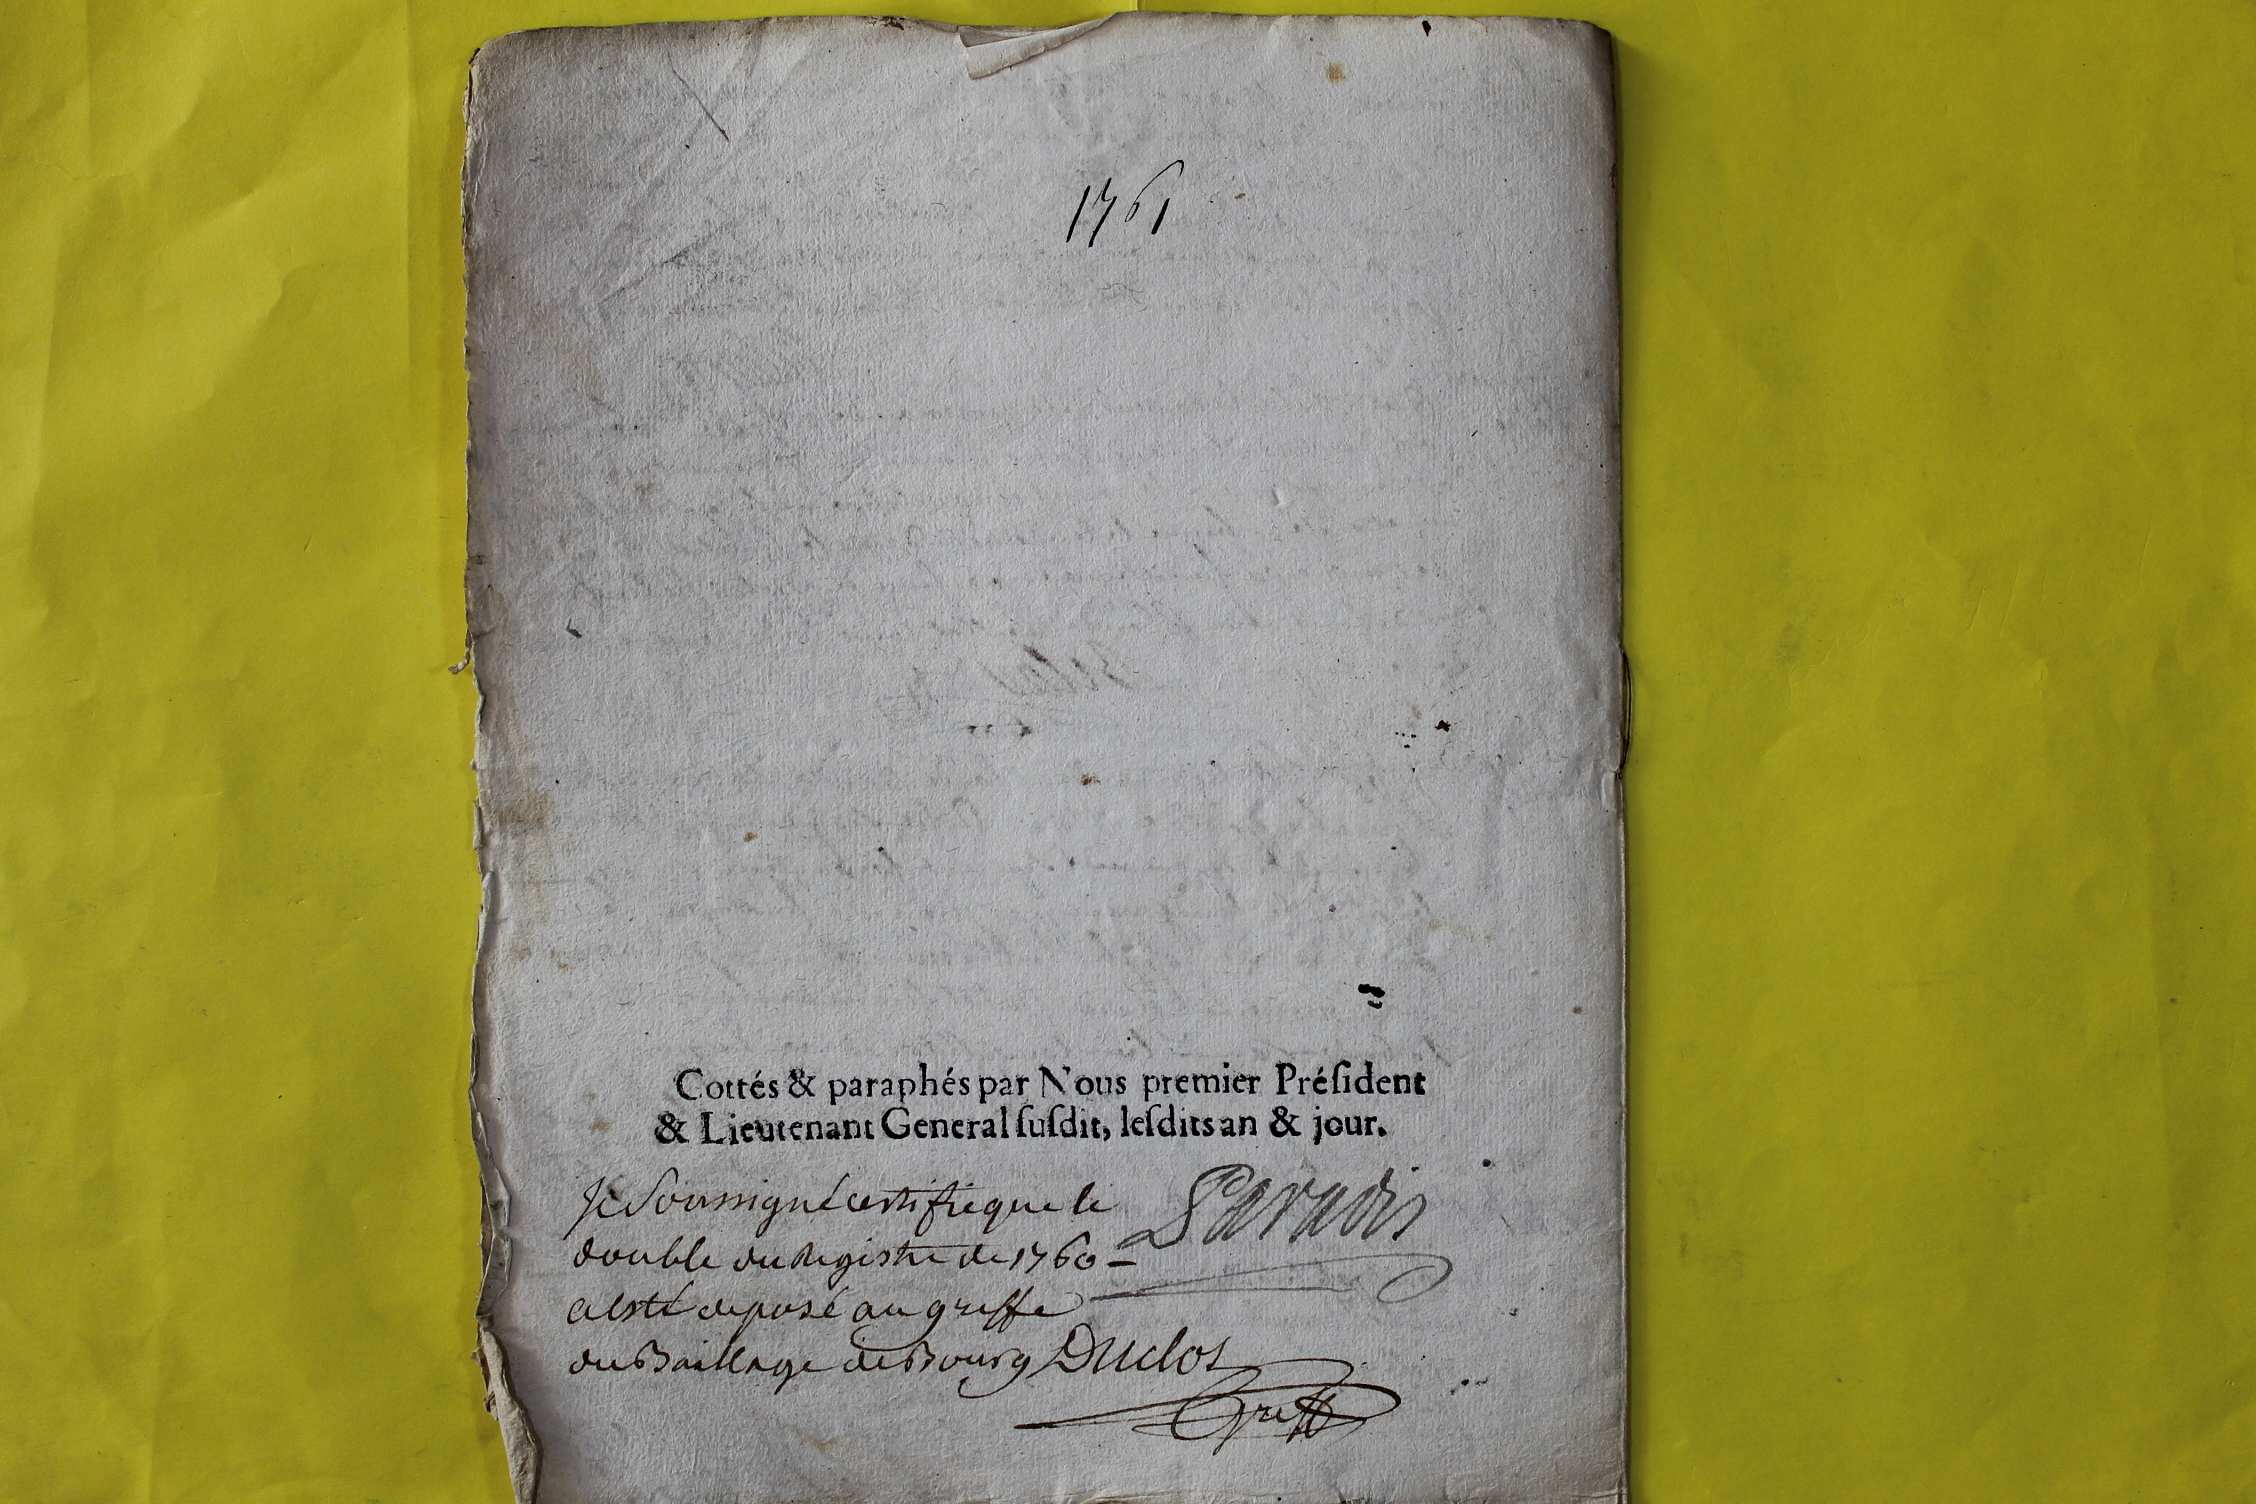 1761
Cottés & paraphés par Nous premier Préſident
& Lieutenant General ſuſdit, leſdits an & jour.
Je Soussigné certifie que le
double du Registre de 1760 –
a esté deposé au greffe
du Baillage de Bourg Duclos
Paradis
Greff